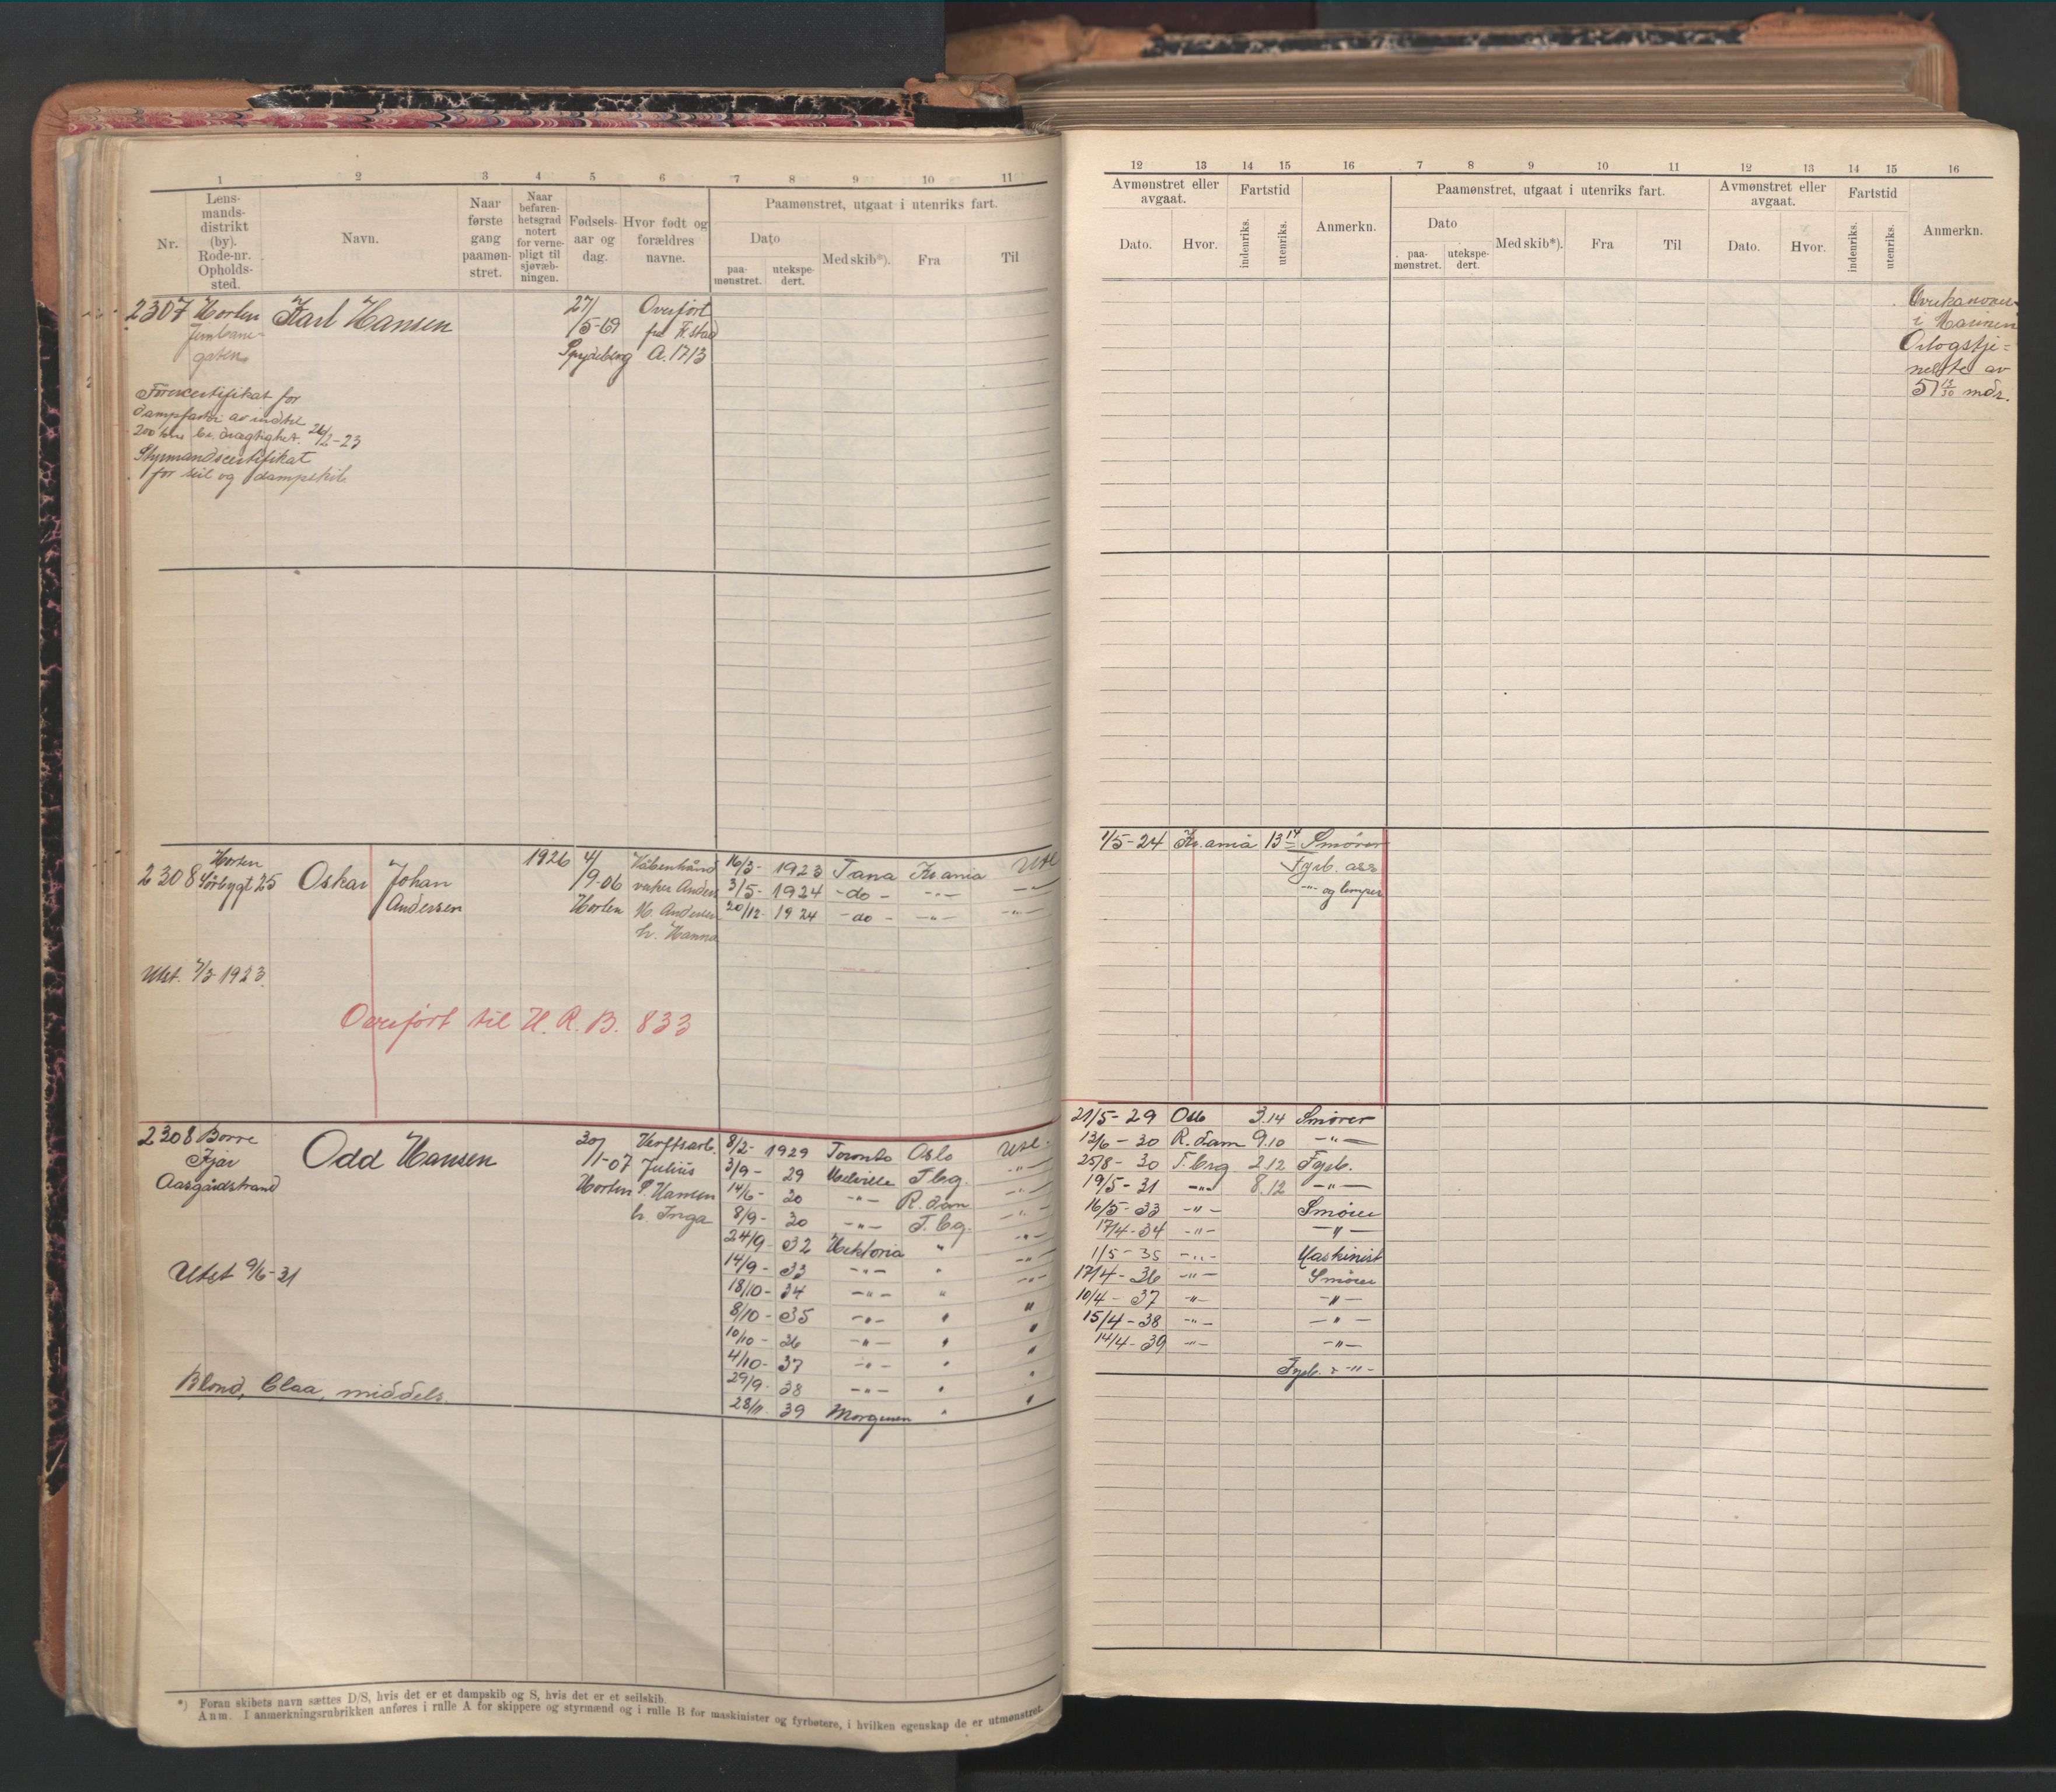 1 2 3 4 5 6 7 8 9 10 11
Nr.
Lens-
mands-
distrikt
(by).
Rode-nr.
Opholds-
sted.
Navn.
Naar
første
gang
paamøn-
stret.
Naar
befaren-
hetsgrad
notert
for verne-
pligt til
sjøvæb-
ningen.
Fødsels-
aar og
dag.
Hvor født og
forældres
navne.
Paamønstret, utgaat i utenriks fart.
Dato
paa-
mønstret.
utekspe-
dert.
Med skib*).
Fra
Til
2307 Horten Karl Hansen 27/ Overført
Jernbane- /5-69 fra Fr.stad
gaten Spydeberg A. 1713
Førercertifikat for
dampfartøi av indtil
200 tons br. drægtighet. 26/2-23
Styrmandscertifikat
for seil og dampskib
Horten
2308 Oskar Johan Andersen 1926 4/
/9-06
Horten
Anders
M. Andersen
h. Hanna
16/3- 1923 Tana Kr.ania Utl
3/5- 1924 -do- -"- -"-
20/12- 1924 -do- -"- -"-
Utst. 7/3 1923.
Overført til H. R. B. 833
2308 Borre Odd Hansen 30/
/1-07
Aasgårdstrand
Horten
Verftsarb.
Julius
P. Hansen
h. Inga
8/2- 1929 Toronto Oslo Utl.
3/9- 29 Melville T.bg. -"-
14/6- 30 -"- R.dam -"-
8/9- 30 -"- T.bg. -"-
24/9- 32 Viktoria " -"-
14/9- 33 -"- " -"-
18/10- 34 -"- " -"-
8/10- 35 -"- " "
10/10- 36 -"- " "
4/10- 37 -"- " "
29/9- 38 -"- " "
28/11- 39 "
Utst 9/6-31
Blond, blaa, middels.
*) Foran skibets navn sættes D/S, hvis det er et dampskib og S, hvis det er et seilskib.
Anm. I anmerkningsrubrikken anføres i rulle A for skippere og styrmænd og i rulle B for maskinister og fyrbøtere, i hvilken egenskap de er utmønstret.
12 13 14 15 16 7 8 9 10 11 12 13 14 15 16
Avmønstret eller
avgaat.
Dato.
Hvor.
Fartstid
indenriks.
utenriks.
Anmerkn.
Paamønstret, utgaat i utenriks fart.
Dato
paa-
mønstret.
utekspe-
dert.
Med skib*).
Fra
Til
Avmønstret eller
avgaat.
Dato.
Hvor.
Fartstid
indenriks.
utenriks.
Anmerkn.
i Marinen
Orlogstje-
neste av
51 12/30 mdr.
1/5-24 Kr.ania 13 14 Smører
Fyrb. ass
-"- og lemper
21/5-29 Oslo 3.14 Smører
13/6-30 R.dam 9.10 -"-
25/8-30 T.brg 2.12 Fyrb.
19/5-31 -"- 8.12 -"-
16/5-33 -"- Smører
17/4-34 -"- -"-
1/5-35 -"- Maskinist
17/4-36 -"- Smører
10/4-37 -"- -"-
15/4-38 -"- -"-
14/4-39 -"- -"-
Fyrb. -"-